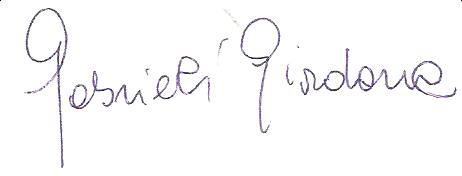 Gabrieli Giordana